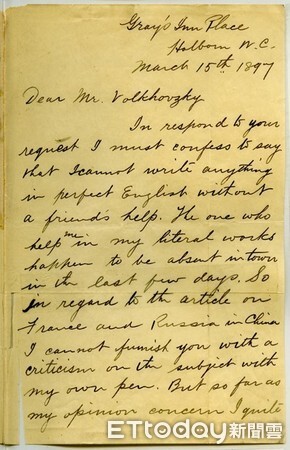 Gray's Inn Place
Holborn W.C.
March 15th 1897
Dear Mr. Volkhovzky
In respond to your
request I must confess to say
that I cannot write anything
in perfect English without
a friend's help. He one who
help me in my literal works
happen to be absent in town
in the last few days. So
in regard to the article on
France and Russia in China
I cannot funish you with a
criticism on the subject with
my own pen. But so far as
my opinion concern I quite
ETtoday新聞雲